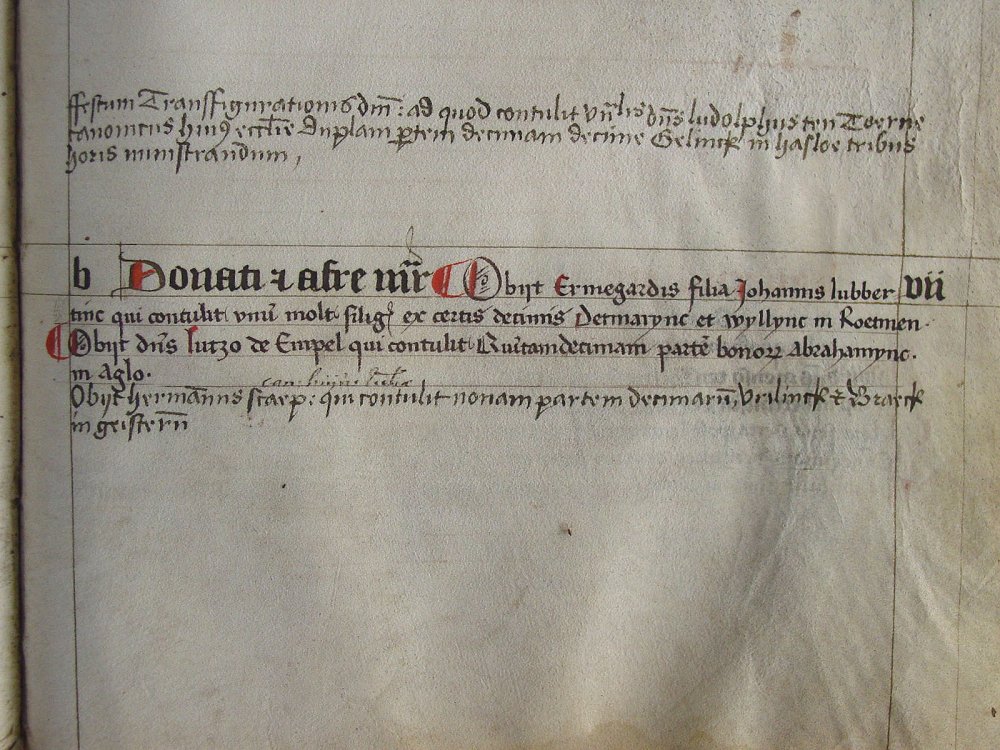 ffestum Transffigurationis dm̄: ad quod contulit vn̄lis dn̄s ludolphus ten Toerne
canonicus huiꝰ eccl̄ie duplam ꝑtem decimam decime Gelinck in hasloe tribus
horis ministrandum,
b Donati ⁊ afre mr̄r Obijt Ermegardis filia Johannis lubber vii
tinc qui contulit vnū molt siligꝭ ex certis decimis Detmarync et wyllync in Roetmen.
Obijt dn̄s lutzo de Empel qui contulit Quītamdecimam partē bonoꝝ abrahamync.
in aglo.
can huius
Obijt hermānns scaep: qui contulit nonam partem decimarū, vrilinck & Braeck
in geistern̄